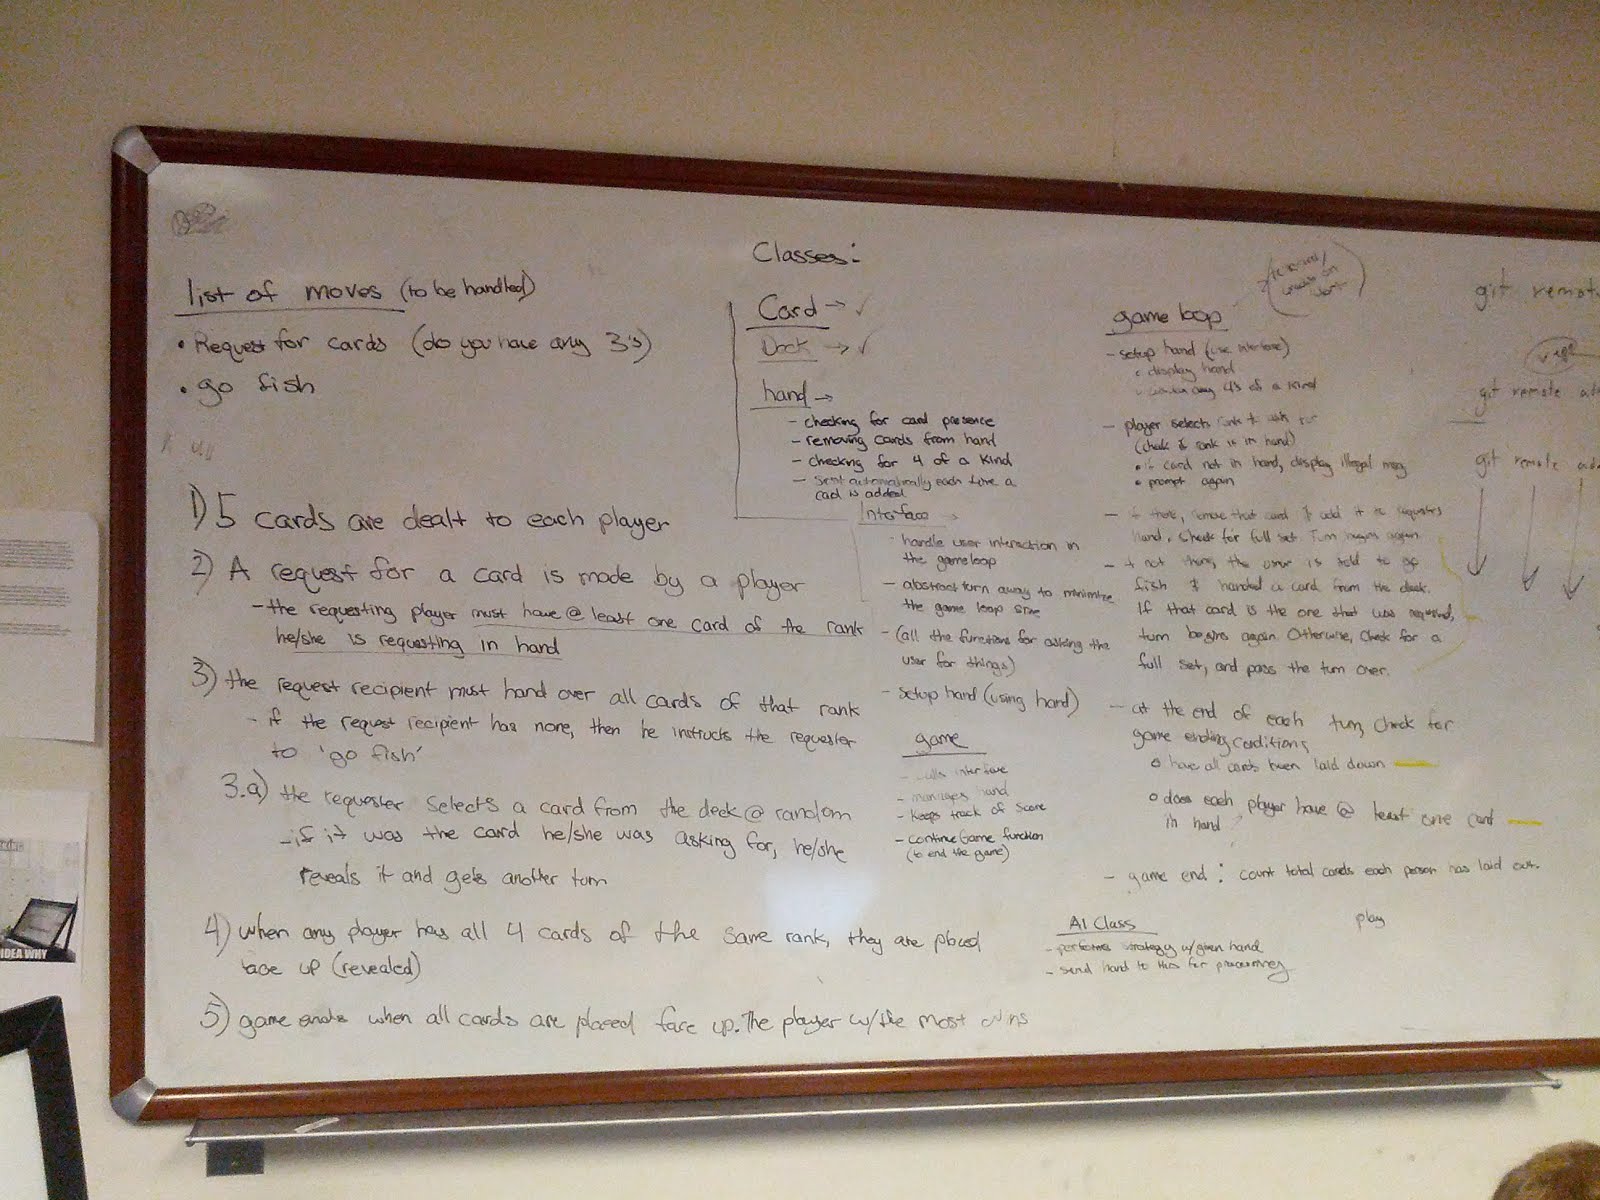 list of moves (to be handled)
• Request for cards (do you have any 3's)
• go fish
1) 5 cards are dealt to each player
2) A request for a card is made by a player
- the requesting player must have @ least one card of the rank
he/she is requesting in hand
3) the request recipient must hand over all cards of that rank
- if the request recipient has none, then he instructs the requester
to 'go fish'
3.a) the requester selects a card from the deck @ random
- if it was the card he/she was asking for, he/she
reveals it and gets another turn
4) when any player has all 4 cards of the same rank, they are placed
face up (revealed)
5) game ends when all cards are placed face up. The player w/the most wins
Classes:
Card → ✓
Deck → ✓
hand →
- checking for card presence
- removing cards from hand
- checking for 4 of a kind
- sent automatically each time a
card is added
Interface
- handle user interaction in
the gameloop
- abstract turn away to minimize
the game loop size
- (all the functions for asking the
user for things)
- setup hand (using hand)
game
- calls interface
- manages hand
- keeps track of score
- continueGame function
(to end the game)
game loop
- setup hand (use interface)
• display hand
any 4's of a kind
- player selects rank to ask for
(check if rank is in hand)
• if card not in hand, display illegal msg
• prompt again
- if there, remove that card & add it to requesters
hand. Check for full set. Turn begins again
- if not there, the user is told to go
fish & handed a card from the deck.
If that card is the one that was requested,
turn begins again. Otherwise, check for a
full set, and pass the turn over.
- at the end of each turn, check for
game ending conditions
o have all cards been laid down
o does each player have @ least one card
in hand
- game end: count total cards each person has laid out.
AI Class
- performs strategy w/given hand
- send hand to this for processing
play
git remot
git remote add
git remote add
IDEA WHY